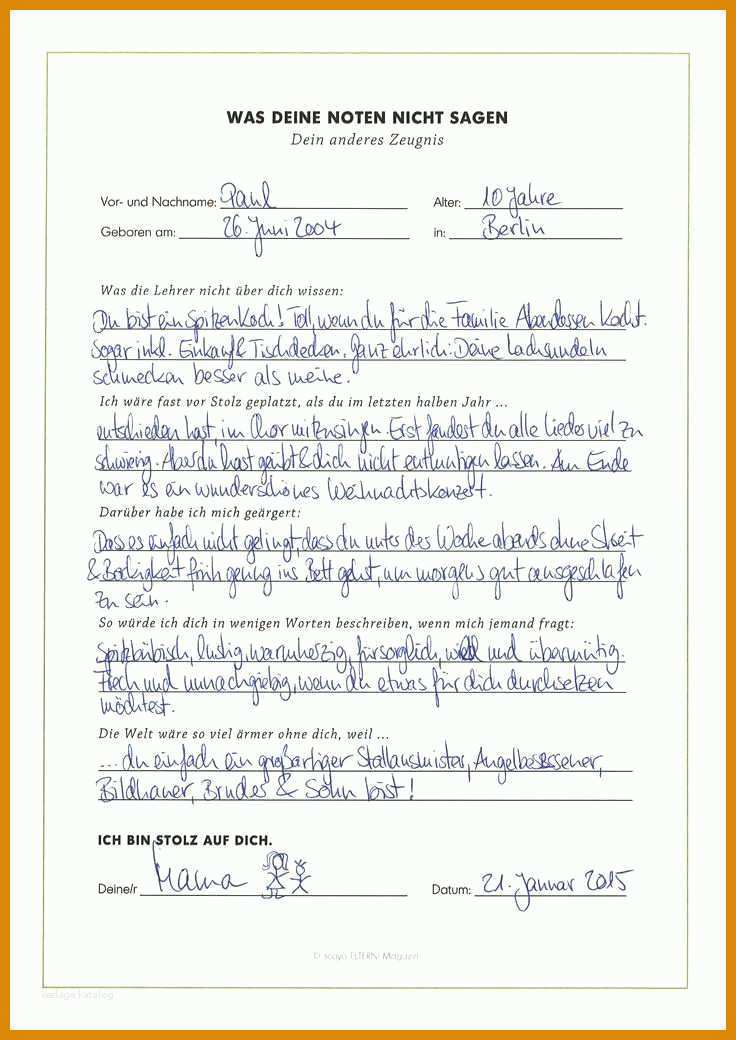 WAS DEINE NOTEN NICHT SAGEN
Dein anderes Zeugnis
Vor- und Nachname: Paul Alter: 10 Jahre
Geboren am: 26. Juni 2004 in: Berlin
Was die Lehrer nicht über dich wissen:
Du bist ein Spitzenkoch! Toll, wenn du für die Familie Abendessen kochst.
Sogar inkl. Einkauf & Tischdecken. Ganz ehrlich: Deine Lachsnudeln
schmecken besser als meine.
Ich wäre fast vor Stolz geplatzt, als du im letzten halben Jahr ...
entschieden hast, im Chor mitzusingen. Erst fandest du alle Lieder viel zu
schwierig. Aber du hast geübt & dich nicht entmutigen lassen. Am Ende
war es ein wunderschönes Weihnachtskonzert.
Darüber habe ich mich geärgert:
Dass es einfach nicht gelingt, dass du unter der Woche abends ohne Streit
& Bockigkeit früh genug ins Bett gehst, um morgens gut ausgeschlafen
zu sein.
So würde ich dich in wenigen Worten beschreiben, wenn mich jemand fragt:
Spitzbübisch, lustig, warmherzig, fürsorglich, wild und übermütig.
Frech und unnachgiebig, wenn du etwas für dich durchsetzen
möchtest.
Die Welt wäre so viel ärmer ohne dich, weil ...
... du einfach ein großartiger Stallausmister, Angelbesessener,
Bildhauer, Bruder & Sohn bist!
ICH BIN STOLZ AUF DICH.
Deine/r Mama Datum: 21. Januar 2015
© scoyo ELTERN! Magazin
vorlage katalog